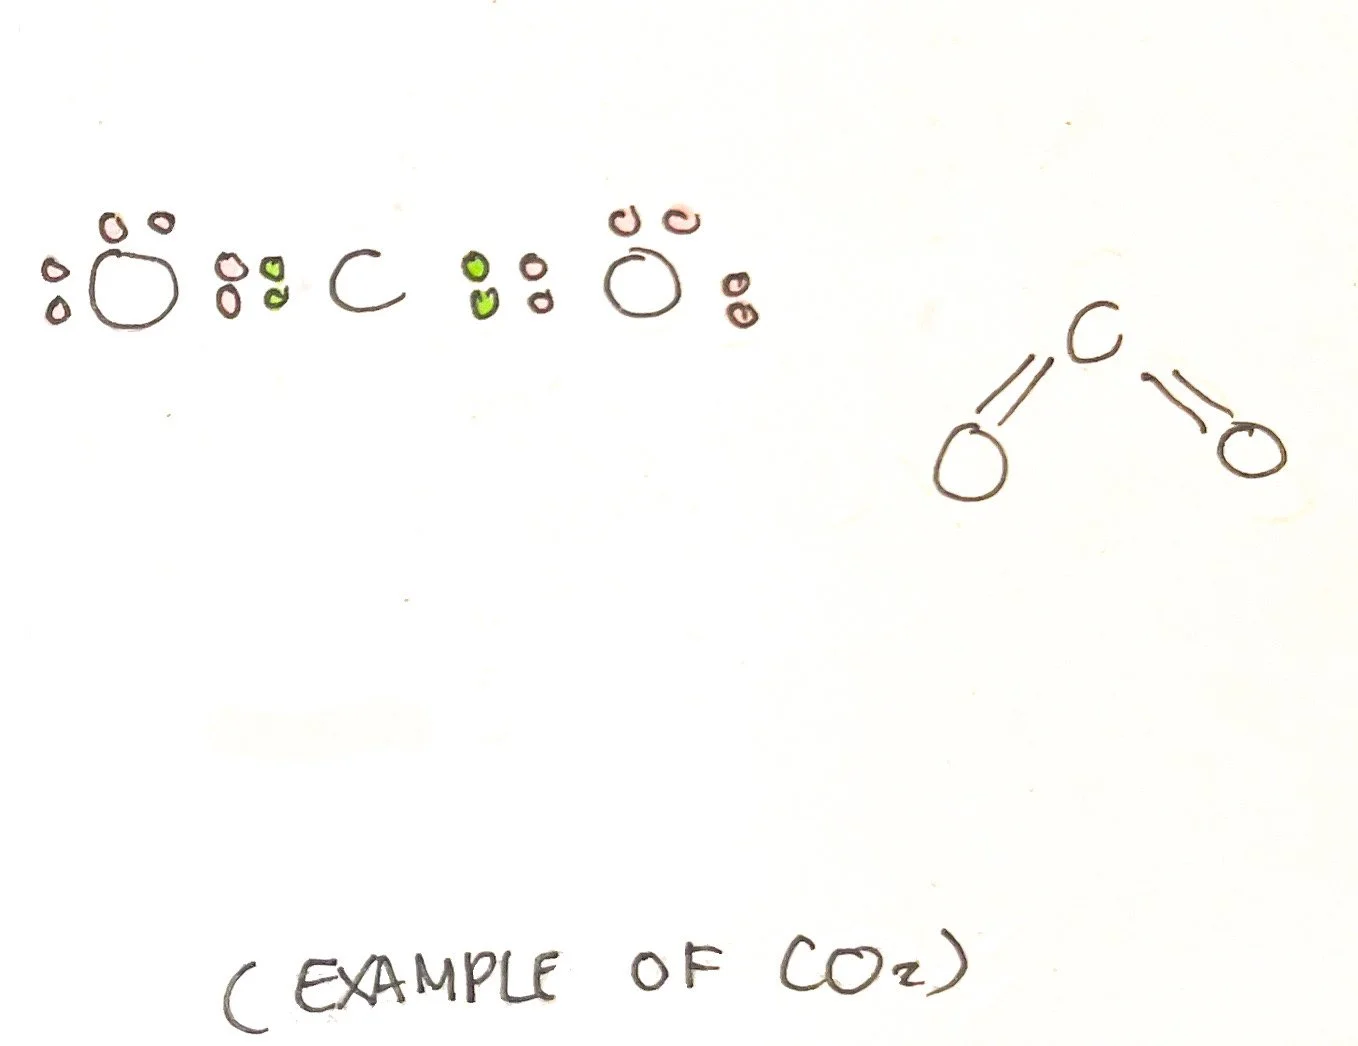 O C O
C
O O
(EXAMPLE OF CO2)